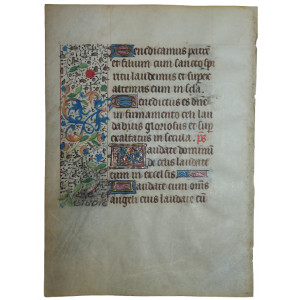 Benedicamus patrē
et filium cum sancto spi
ritu laudemus et super
exaltemus eum in scla.
Benedictus es dñe
in firmamento celi et lau
dabilis et gloriosus et sup
exaltatus in secula. ps
Laudate dominum
de celis laudate
eum in excelsis
Laudate eum oīns
angeli eius laudate eū